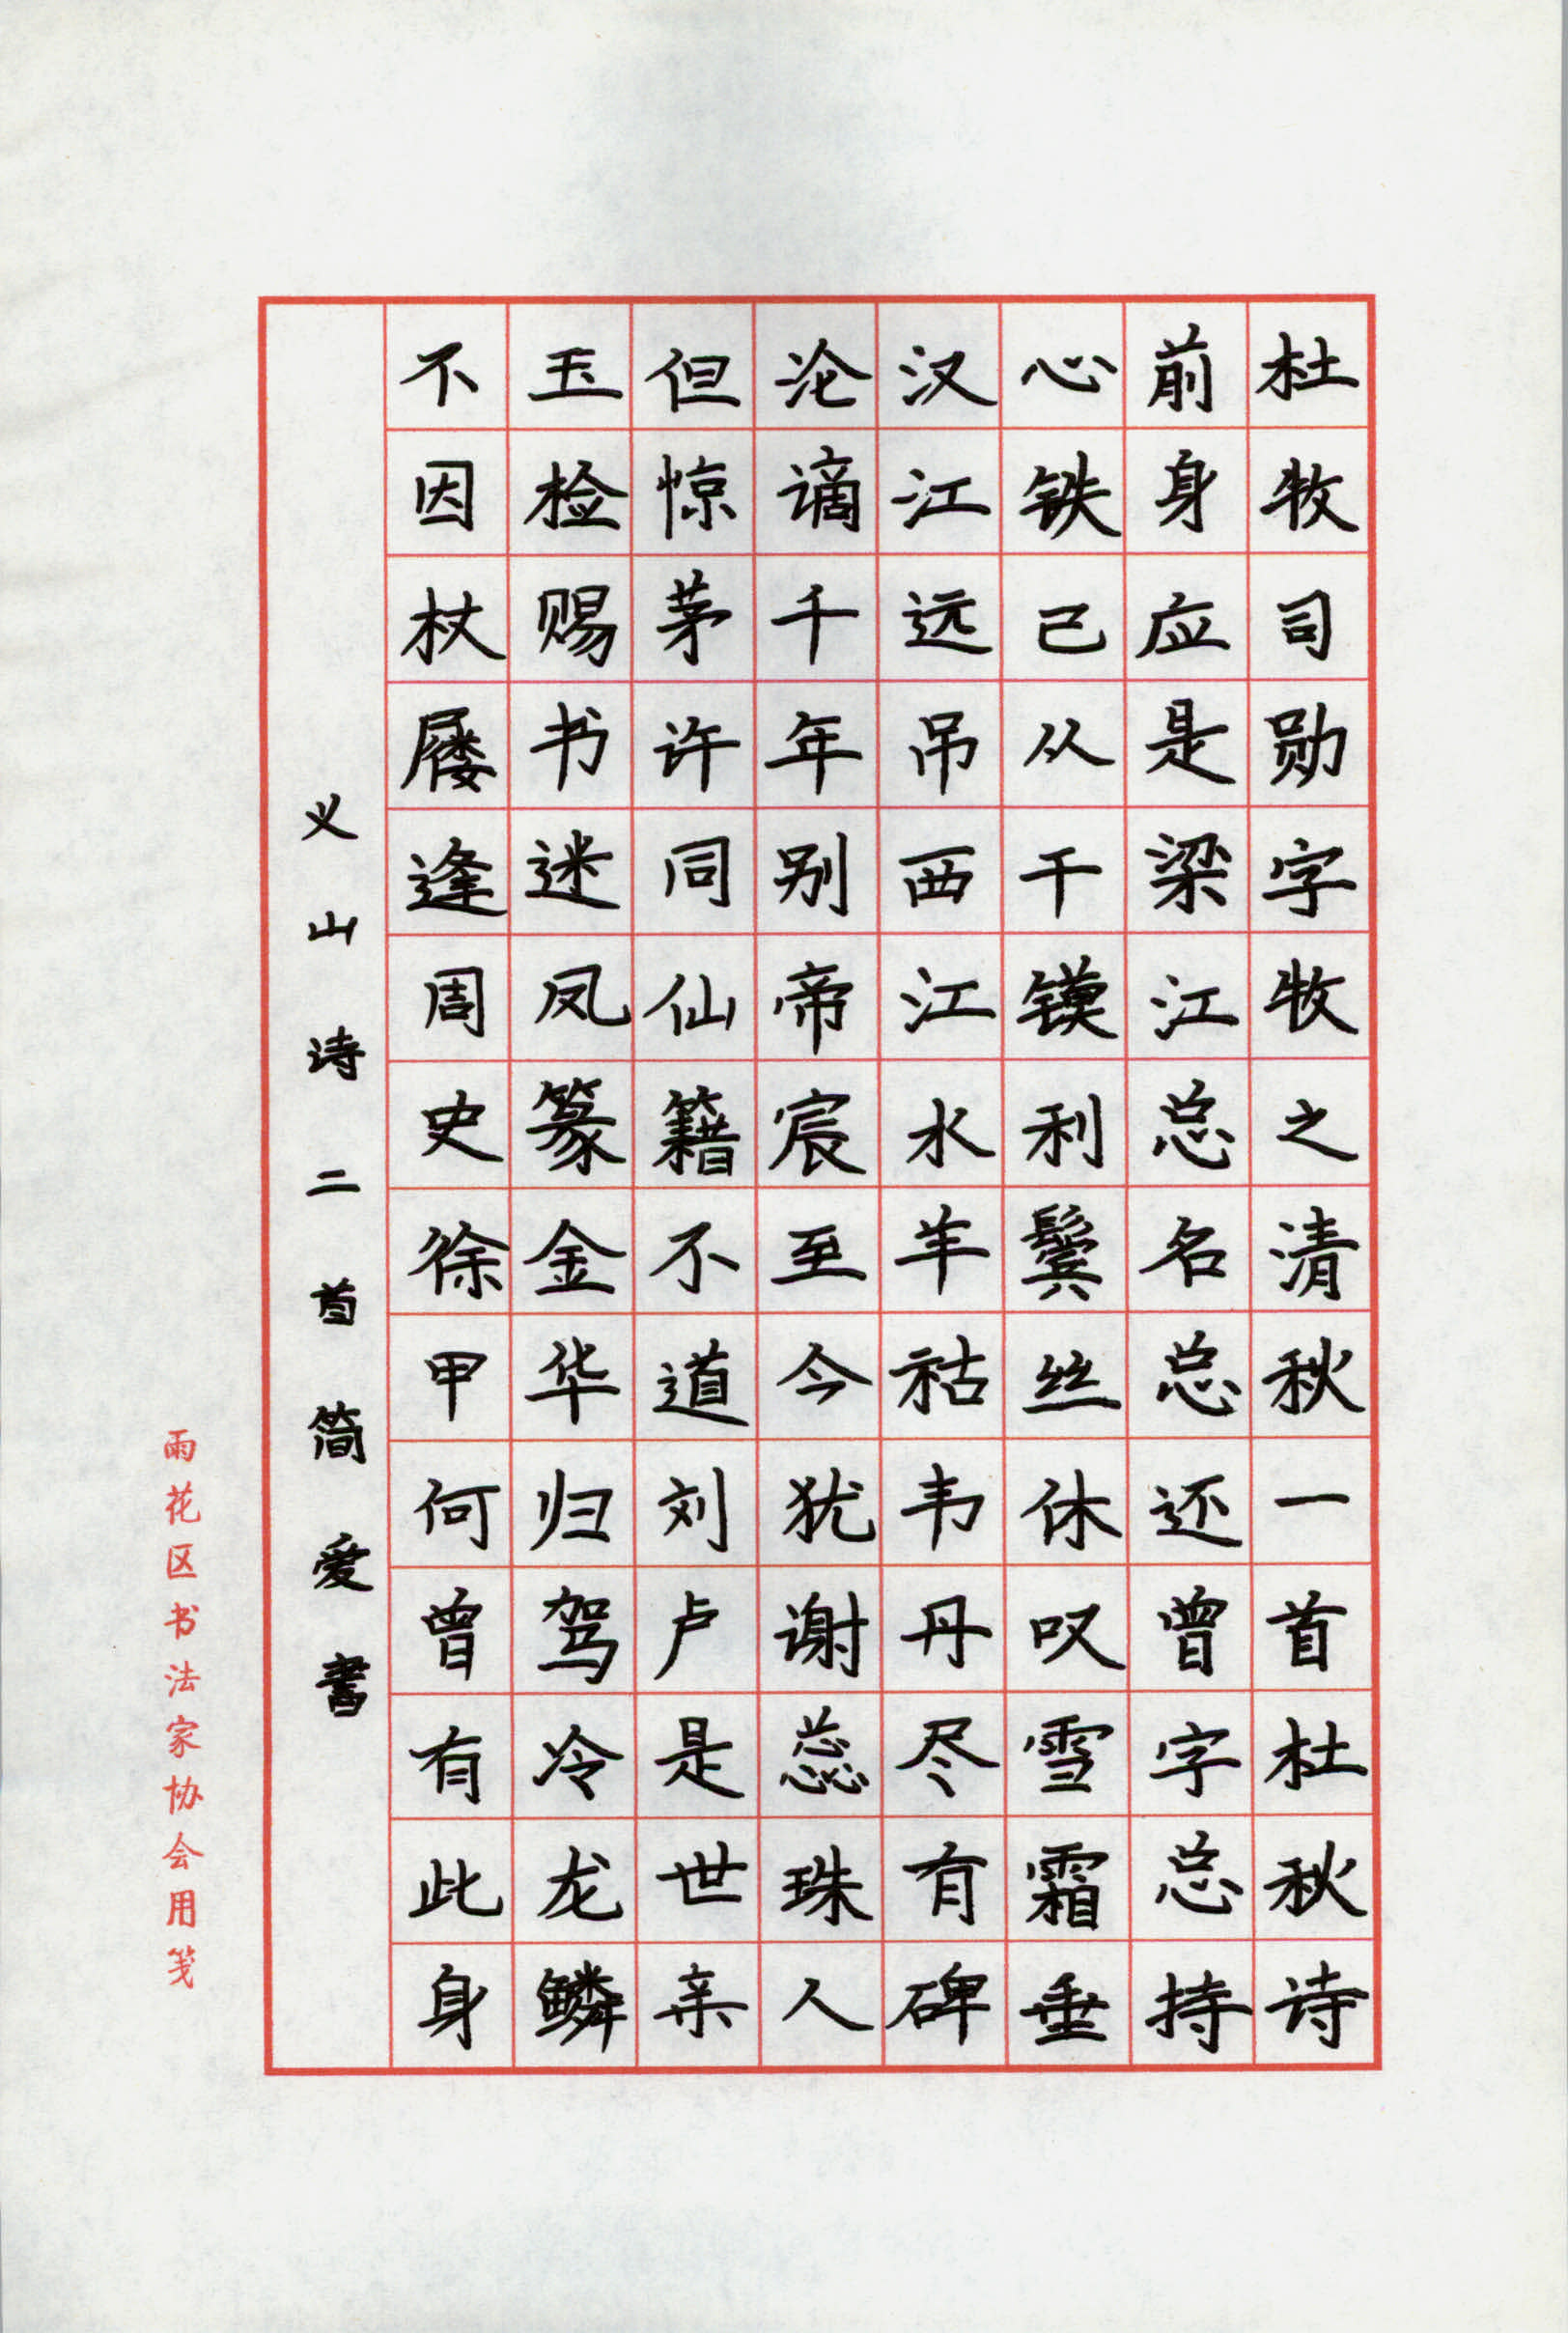 杜牧司勋字牧之清秋一首杜秋诗
前身应是梁江总名总还曾字总持
心铁已从干镆利鬓丝休叹雪霜垂
汉江远吊西江水羊祜韦丹尽有碑
沦谪千年别帝宸至今犹谢蕊珠人
但惊茅许同仙籍不道刘卢是世亲
玉检赐书迷凤篆金华归驾冷龙鳞
不因杖屦逢周史徐甲何曾有此身
义山诗二首简爱书
雨花区书法家协会用笺